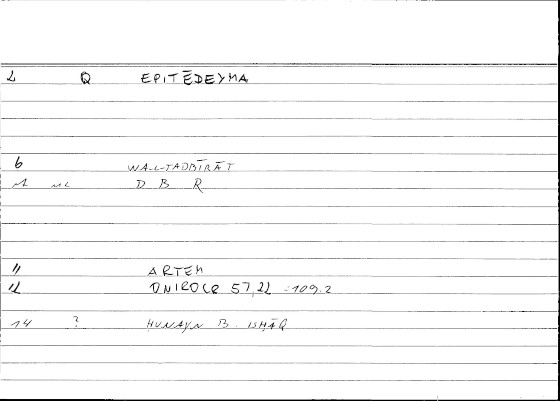 2 Q EPITĒDEYMA
6 WA-L-TADBĪRĀT
M ML D B R
11 ARTEM
12 ONIROCR 57,22 =109.2
14 ? ḤUNAYN B. ISḤĀQ